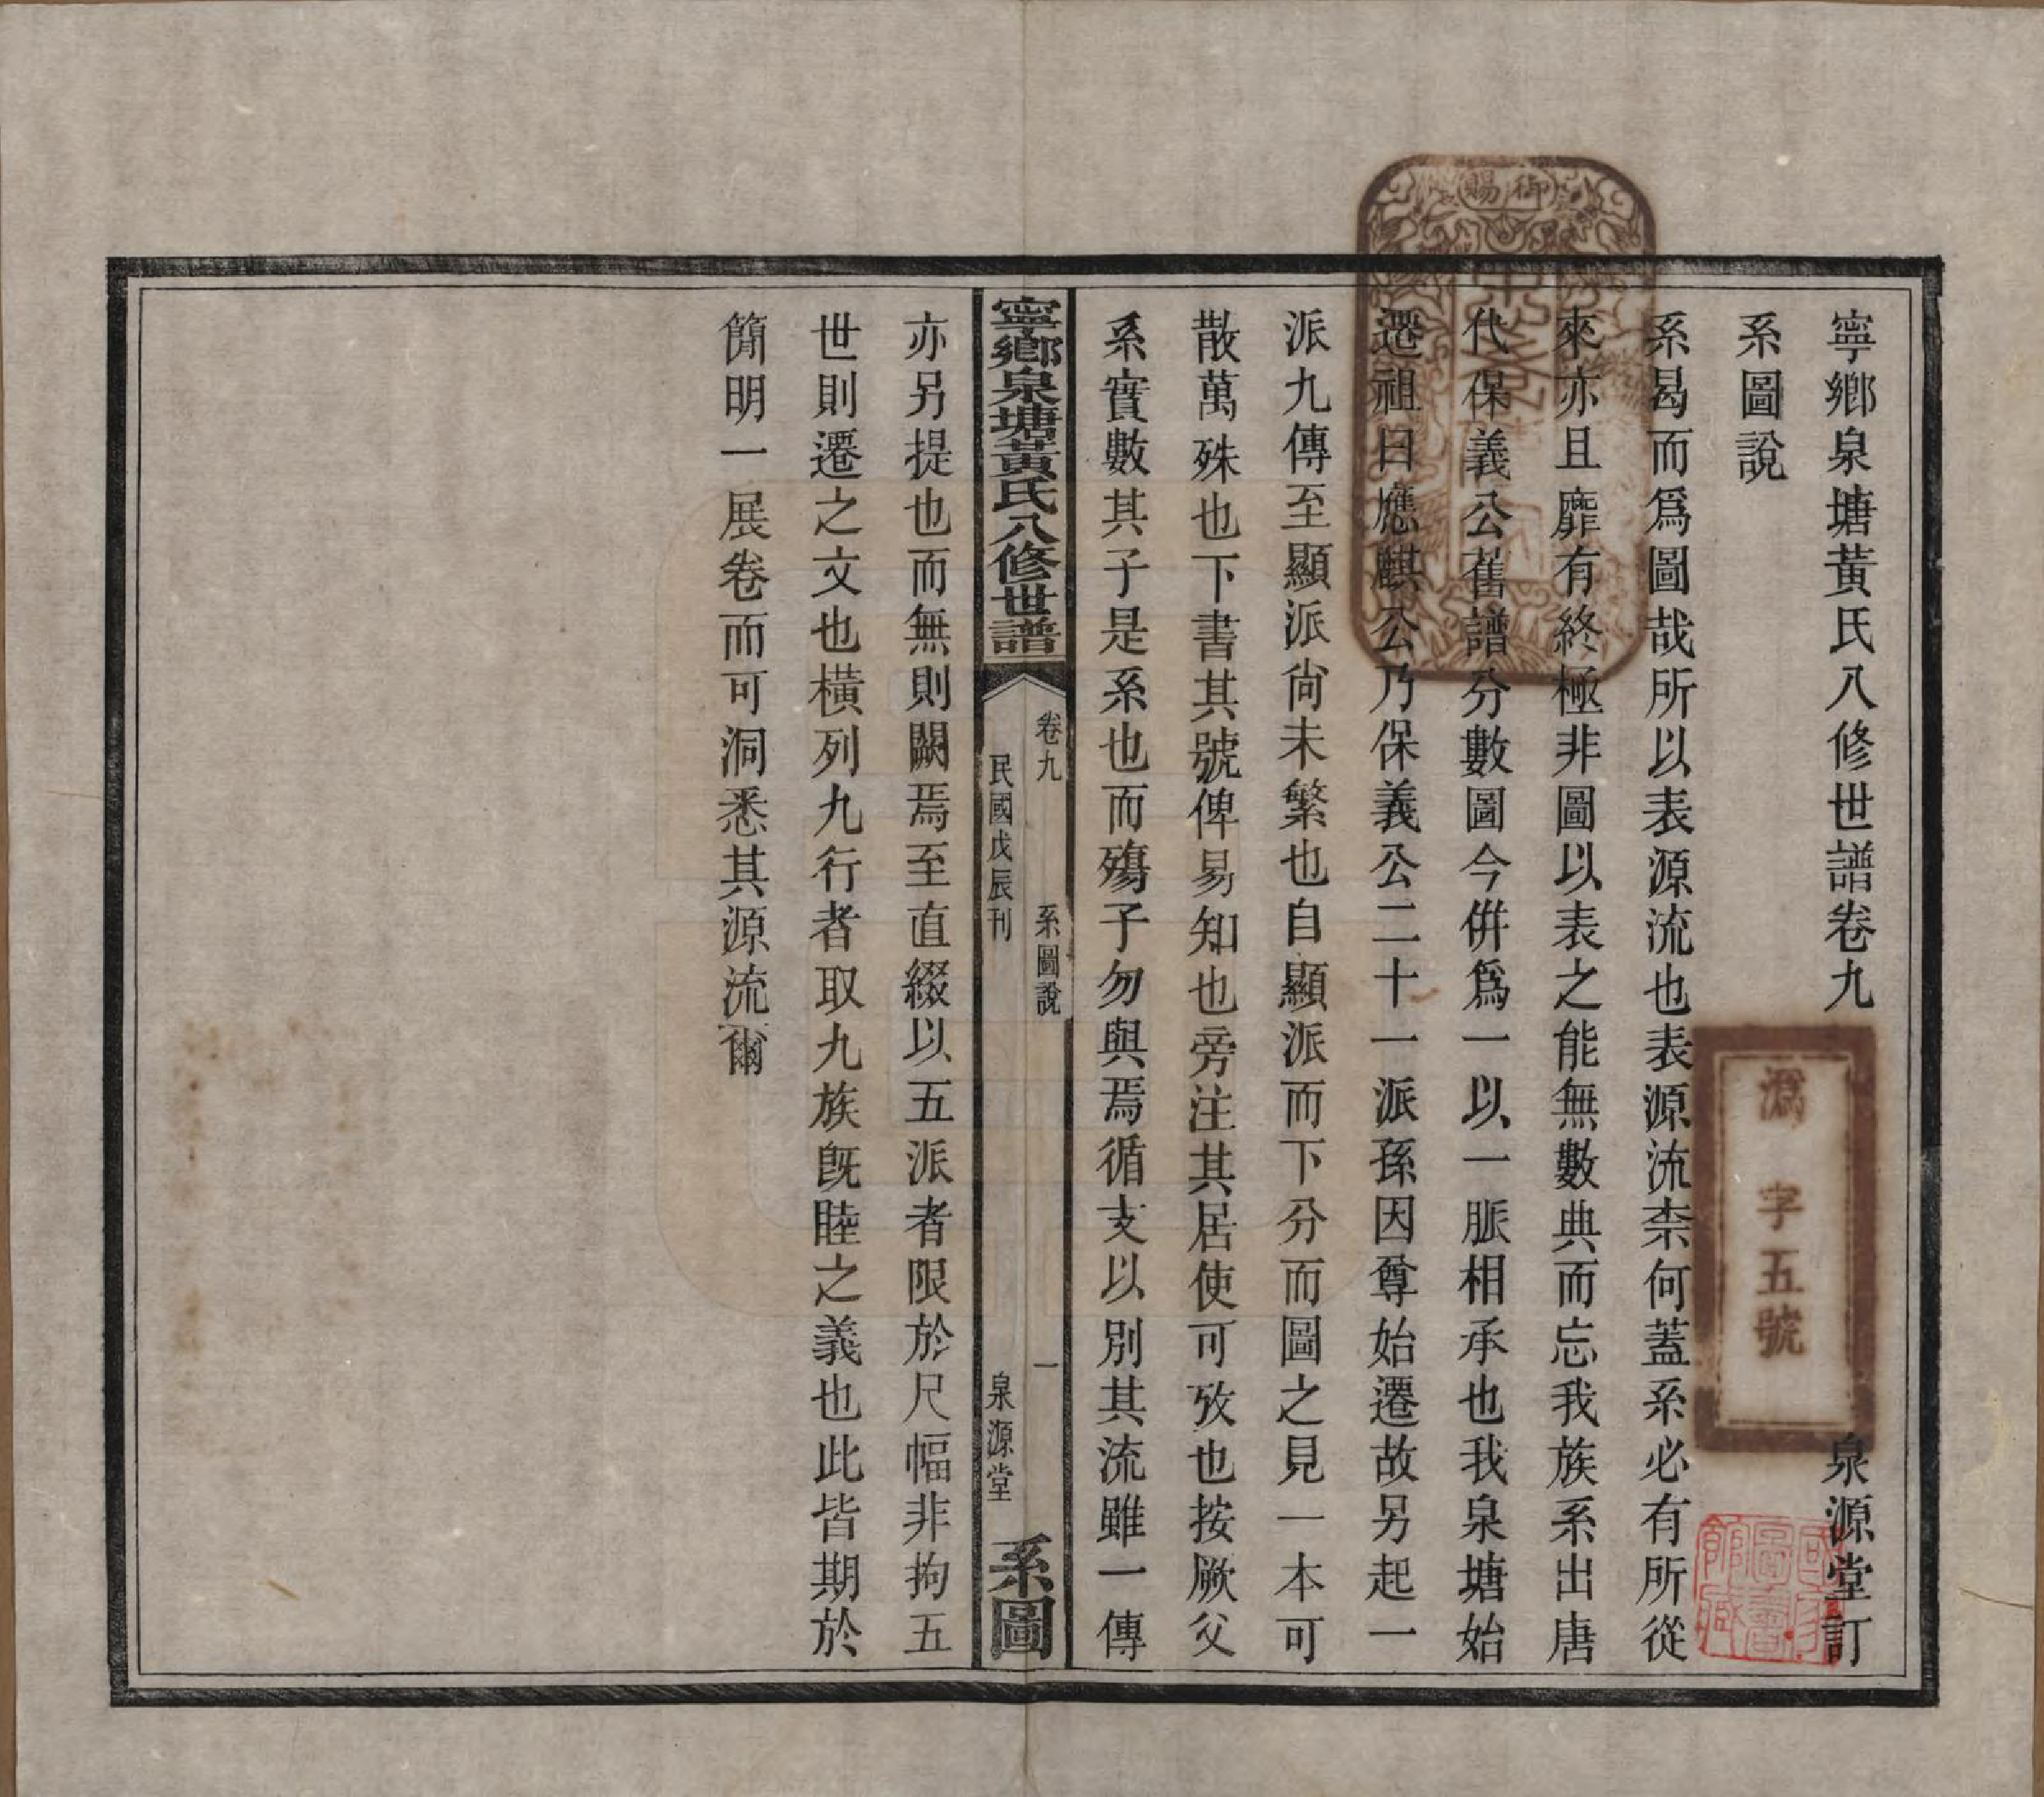 寧鄉泉塘黃氏八修世譜卷九
泉源堂訂
系圖說
系曷而爲圖哉所以表源流也表源流柰何蓋系必有所從
來亦且靡有終極非圖以表之能無數典而忘我族系出唐
代保義公舊譜分數圖今併爲一以一脈相承也我泉塘始
遷祖曰應麒公乃保義公二十一派孫因尊始遷故另起一
派九傳至顯派尙未繁也自顯派而下分而圖之見一本可
散萬殊也下書其號俾易知也旁注其居使可攷也按厥父
系實數其子是系也而殤子勿與焉循支以別其流雖一傳
寧鄉泉塘黃氏八修世譜
卷九
系圖說
一
民國戊辰刊
泉源堂
系圖
亦另提也而無則闕焉至直綴以五派者限於尺幅非拘五
世則遷之文也橫列九行者取九族旣睦之義也此皆期於
簡明一展卷而可洞悉其源流爾
御賜
溈字五號